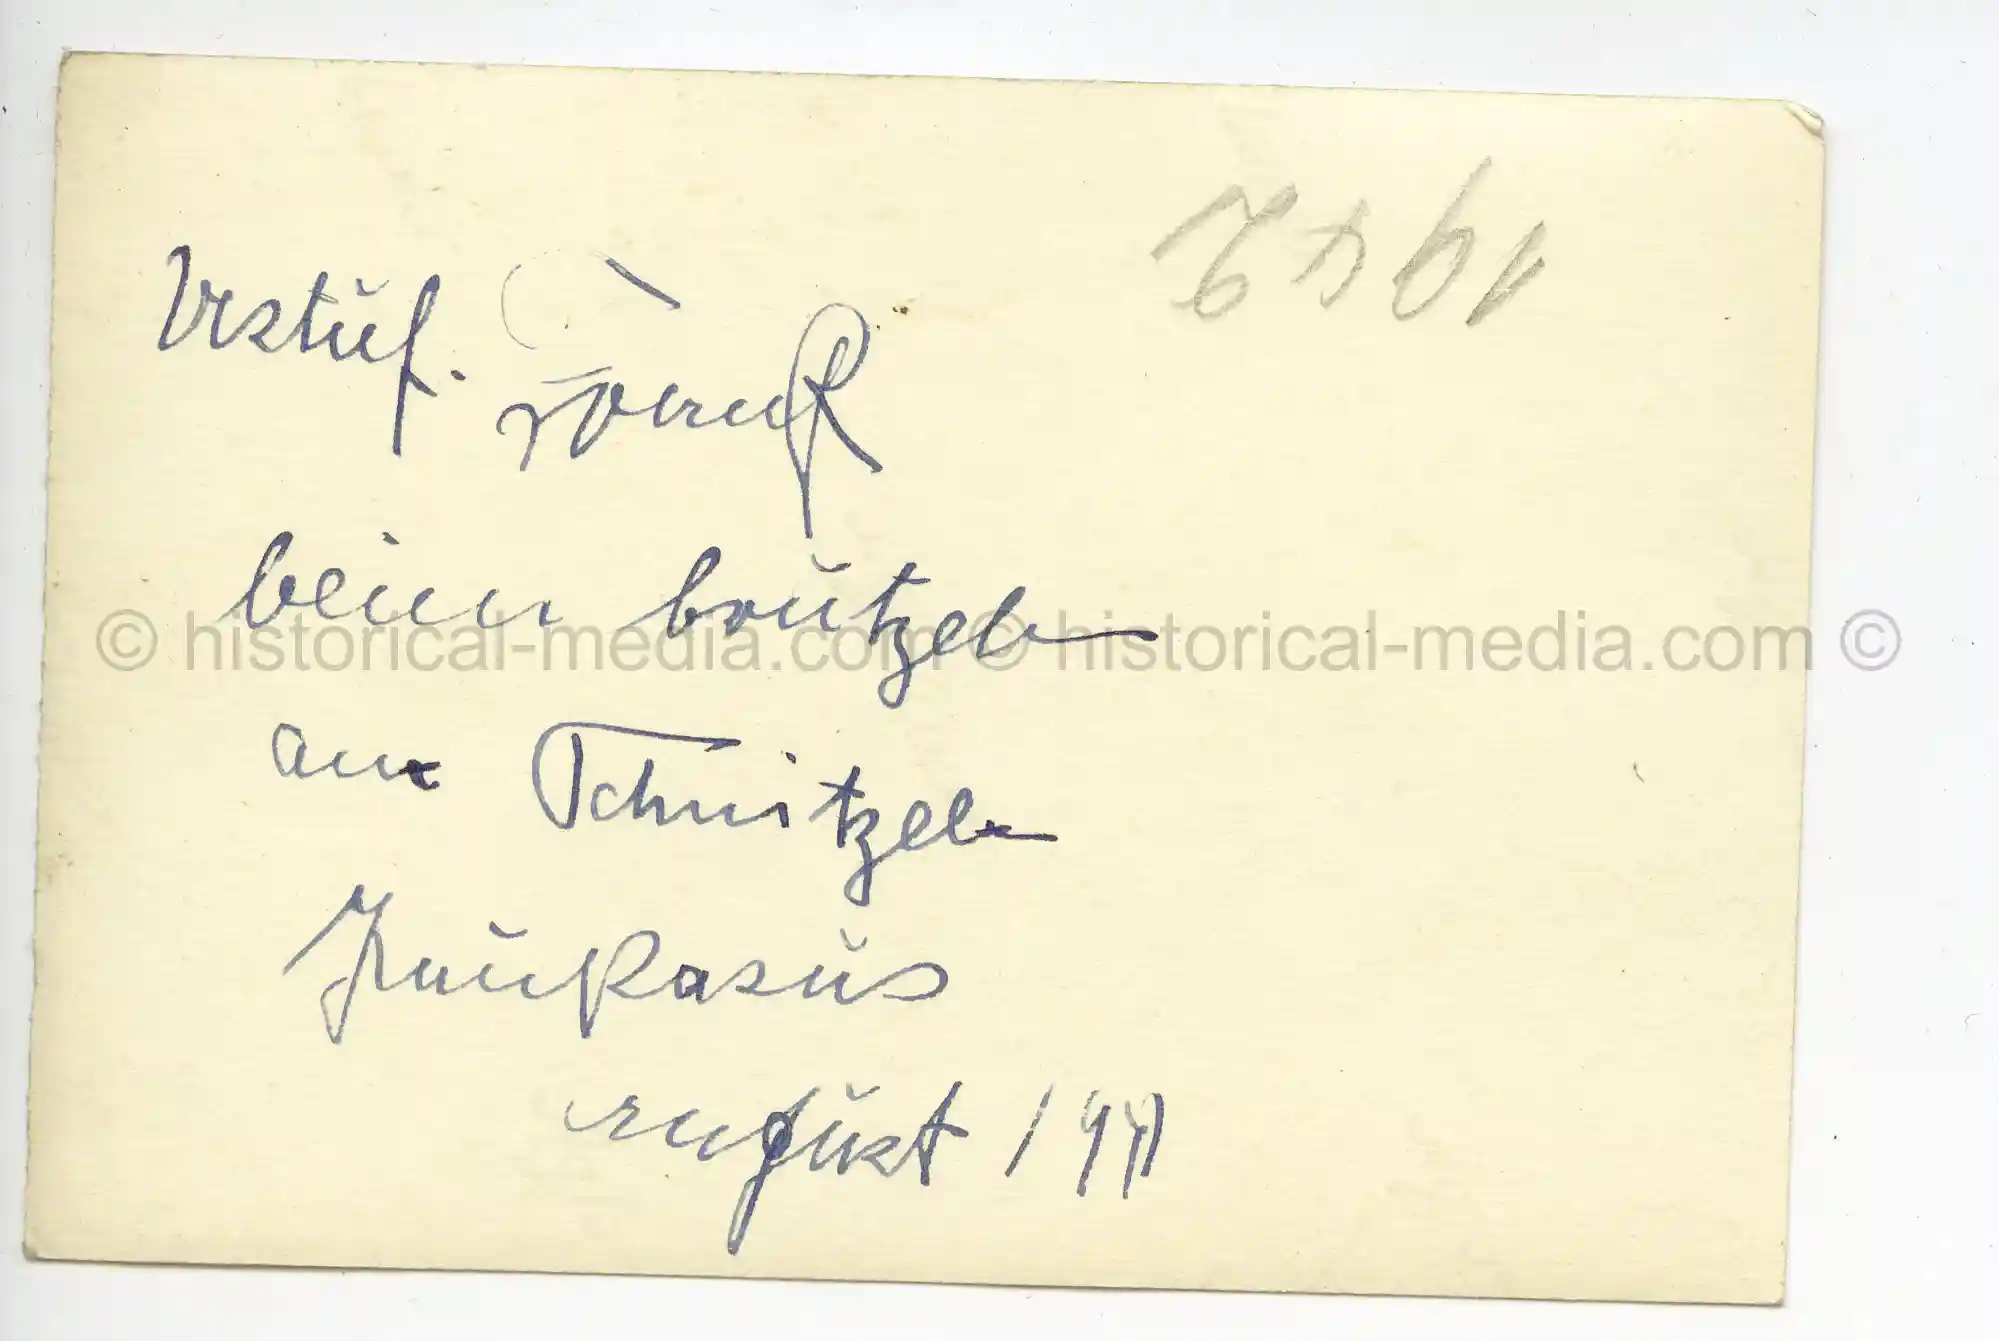 1942
Ustuf.
beim brutzeln
an Schnitzeln
Kaukasus
August 194
© historical-media.com © historical-media.com ©